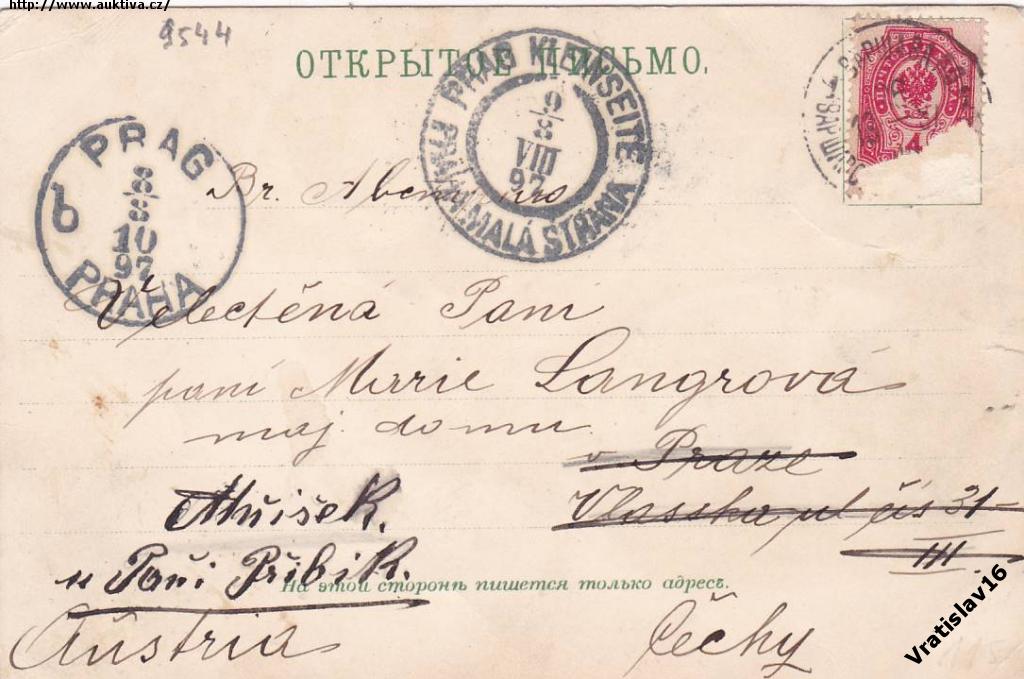 http://www.auktiva.cz/
9544
ОТКРЫТОЕ ПИСЬМО.
PRAG KLEINSEITE
PRAHA MALÁ STRANA
9
8
VIII
97
PRAG
6
10
97
PRAHA
4
Br.
Velectěná Paní
paní Marie Langrová
maj. domu
v Praze
Vlasska ul čís 31
III
Mníšek.
u Paní Přibik.
На этой сторонѣ пишется только адресъ.
Aŭstria Čechy
Vratislav16